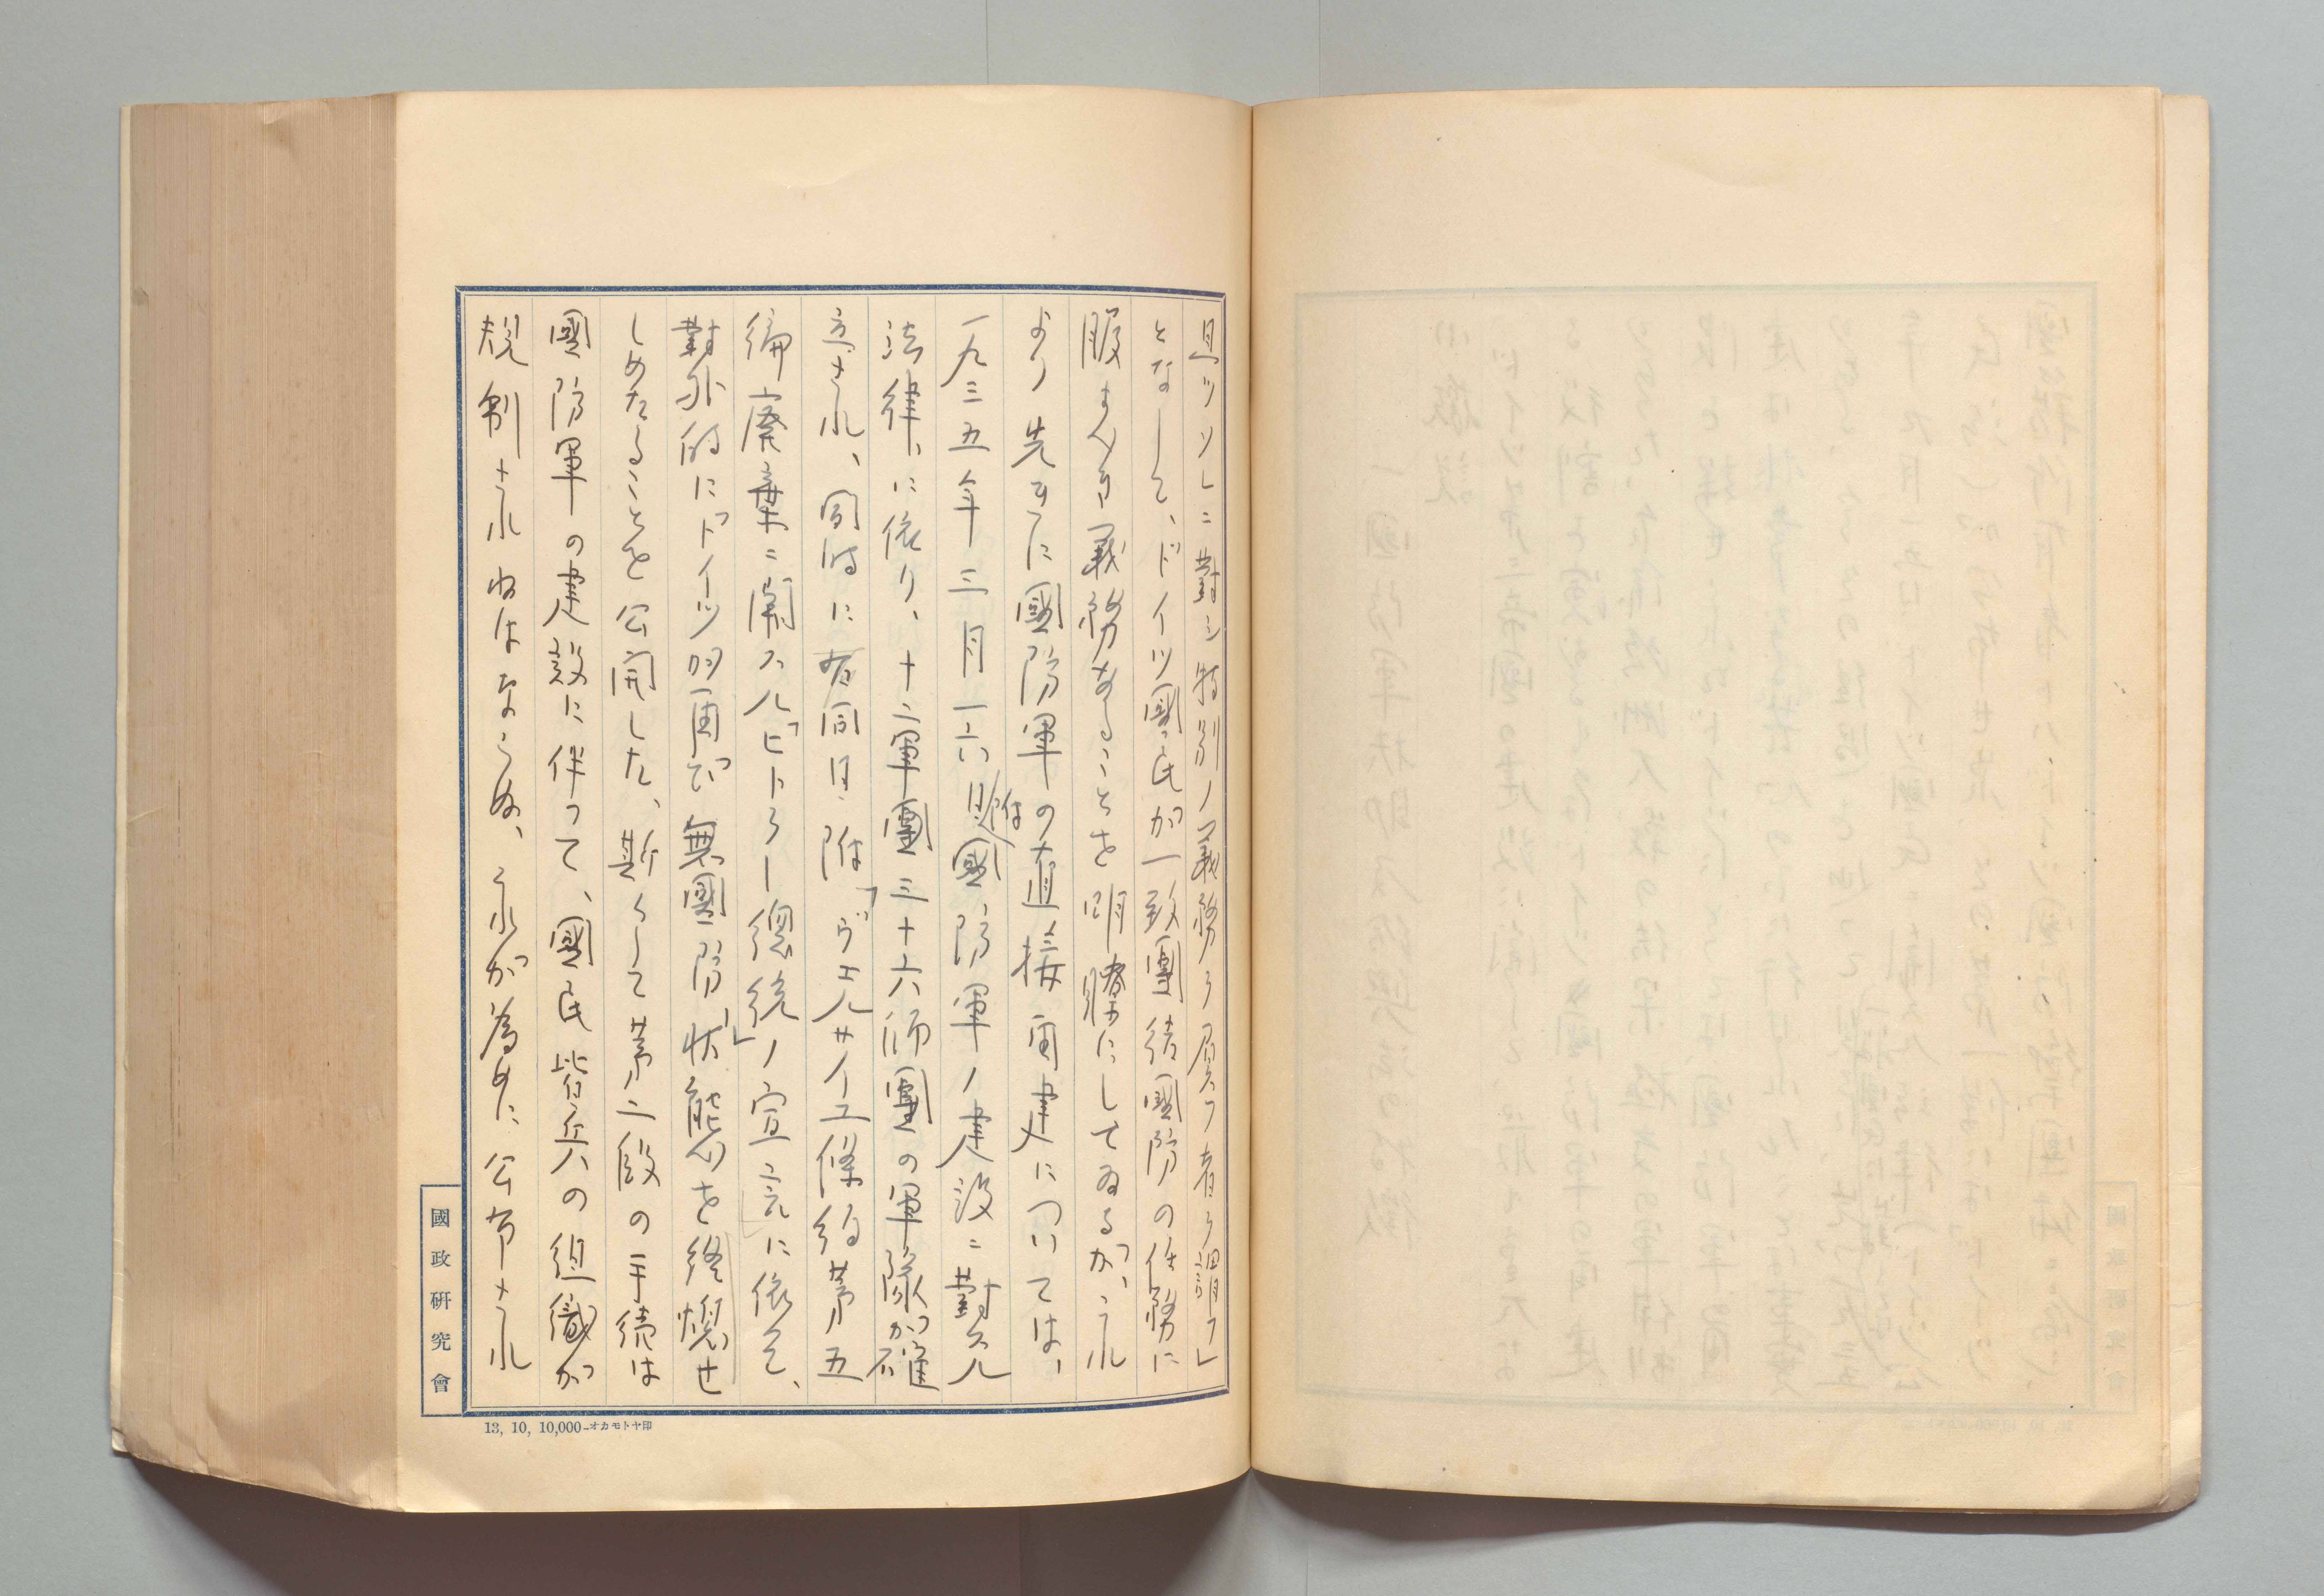 且ツソレニ對シ特別ノ義務ヲ屓フ者ヲ謂フ」
となして、ドイツ國民が一致團結國防の任務に
服すべき義務あることを明瞭にしてゐるが、これ
より先きに國防軍の直接再建については、
一九三五年三月一六日附國防軍ノ建設ニ對スル
法律、に依り、十二軍團三十六師團の軍隊が確
立され、同時に同日附「ヴエルサイユ條約第五
編廢棄ニ關スル「ヒトラー總統」ノ宣言に依て、
對外的に「ドイツが再び無國防」状態を終熄せ
しめたることを公開した、斯くして第二段の手續は
國防軍の建設に伴つて、國民皆兵の組織が
規制されねばならぬ、これが為めに公布され
國政研究會
13, 10, 10,000—オカモトヤ印